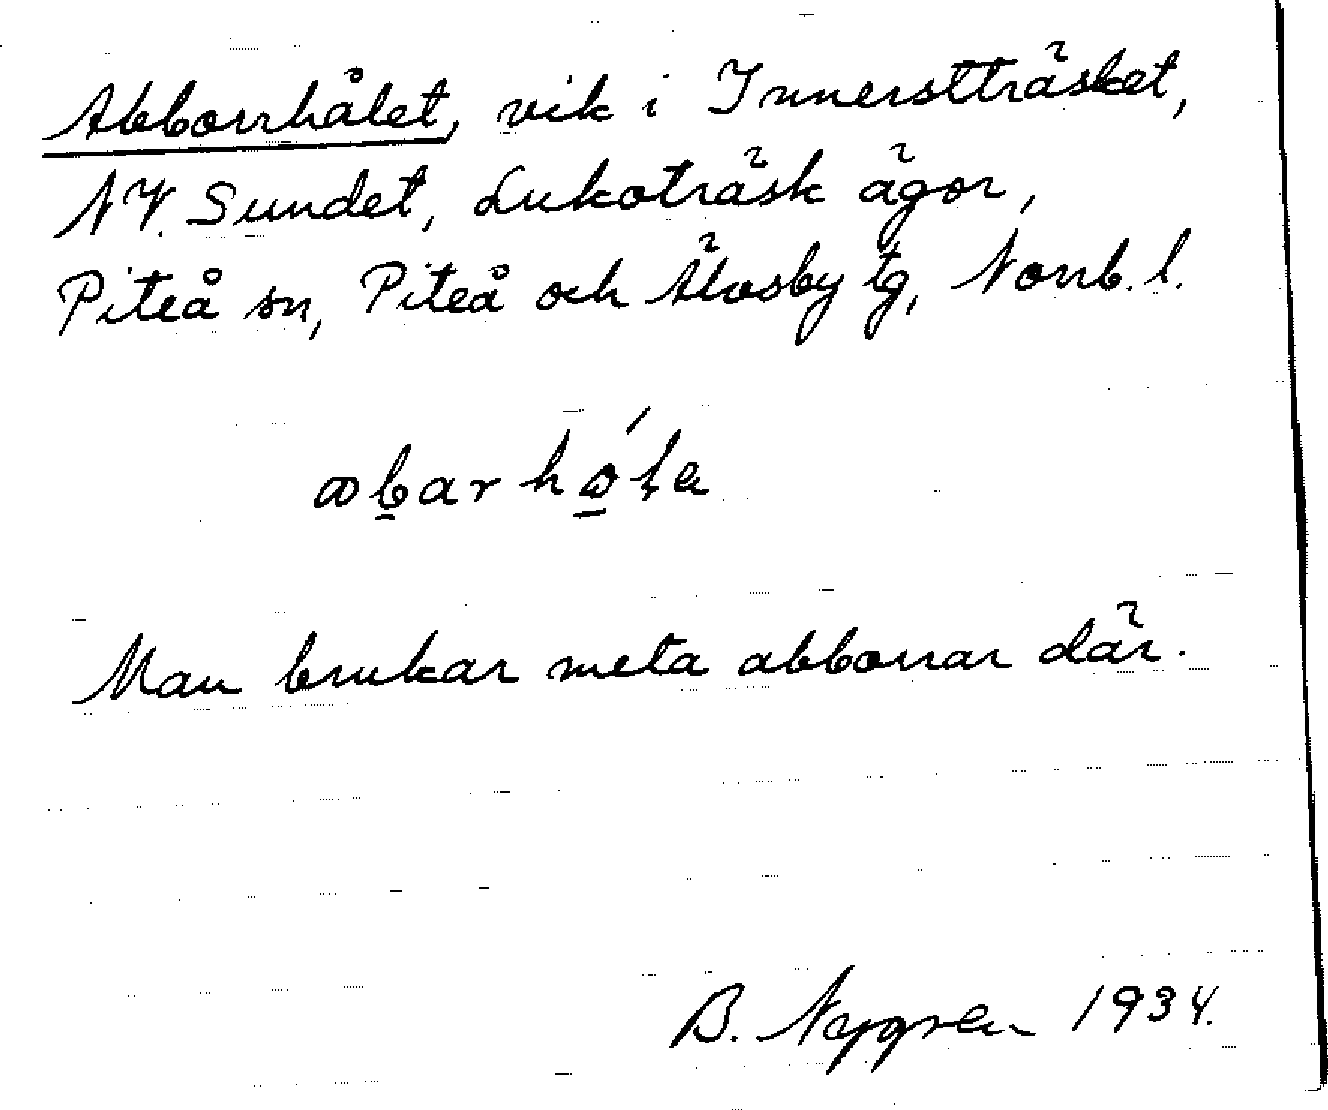 Abborrhålet, vik i Innerstträsket,
NV. Sundet, Lukoträsk ägor,
Piteå sn, Piteå och Älvsby tg, Norrb. l.
Man brukar meta abborrar där.
B. Nygren 1934.